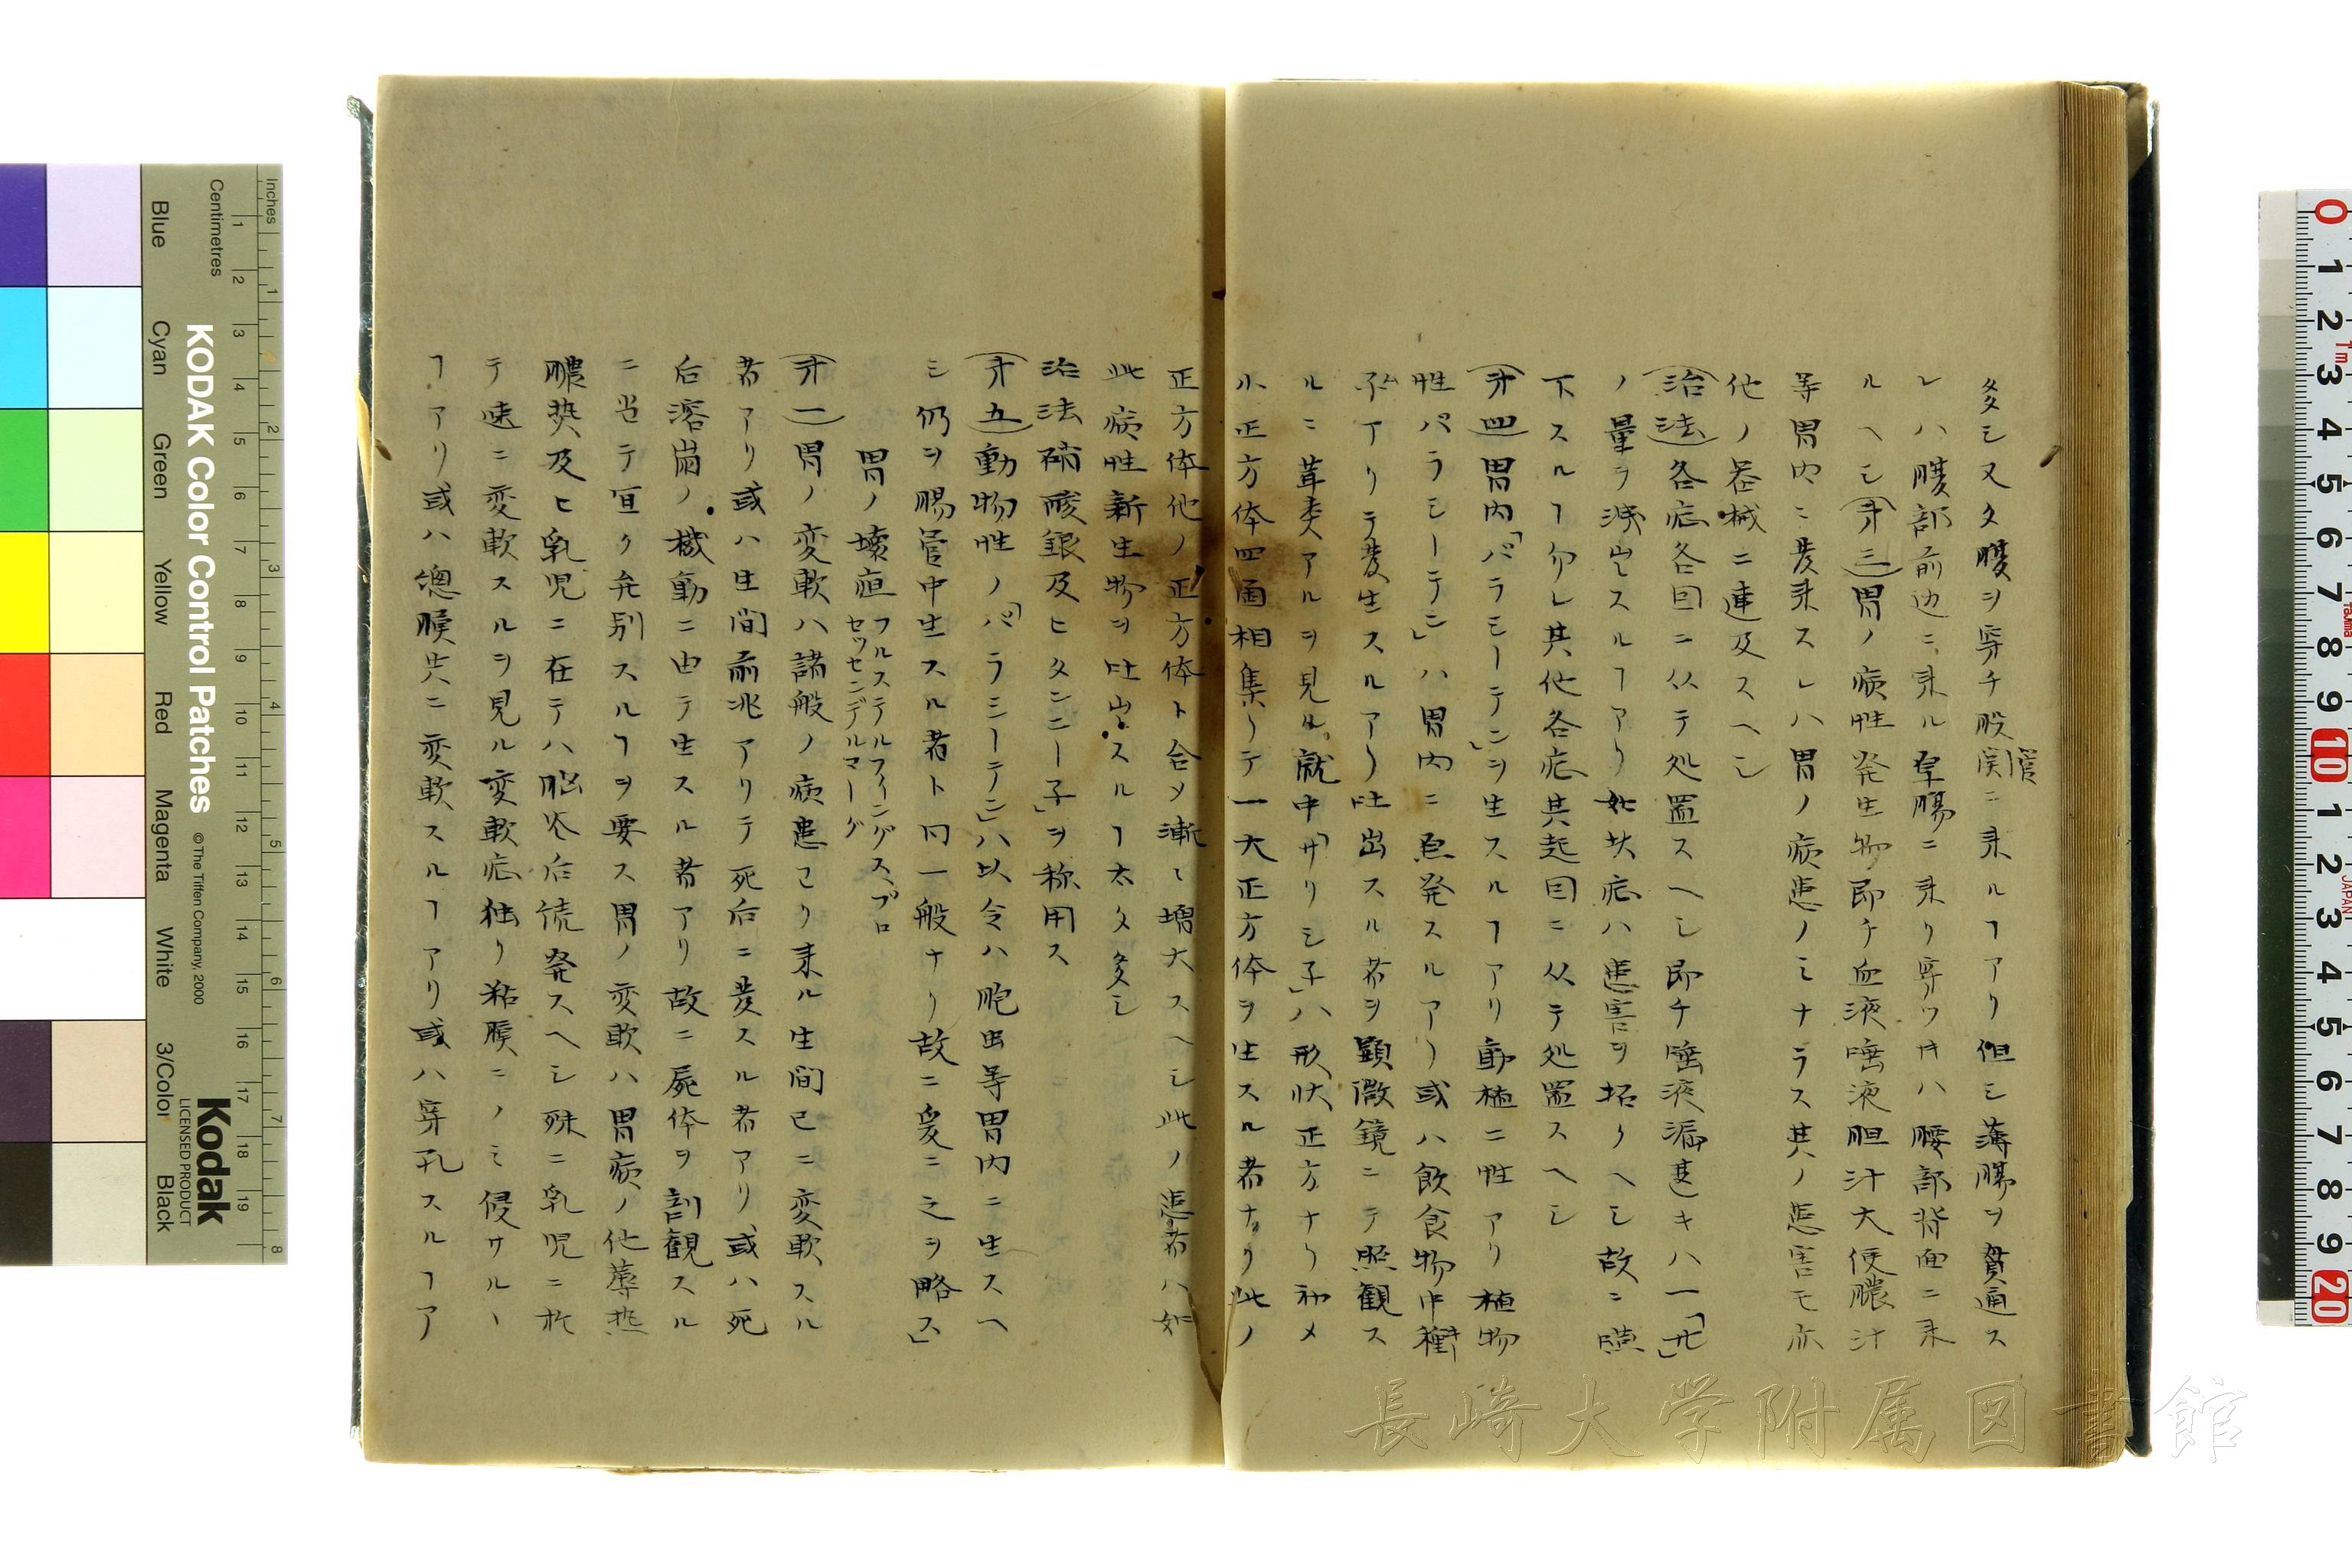 多シ又タ腹ヲ穿チ股関ニ来ルヿアリ但シ薄腸ヲ貫通ス
管
レハ腹部前辺ニ来ル厚腸ニ来リ穿ツキハ腰部背面ニ来
ルヘシ第三胃ノ病性発生物即チ血液唾液胆汁大便膿汁
等胃内ニ発来スレハ胃ノ病患ノミナラス其ノ患害モ亦
他ノ器械ニ連及スヘシ
治法各症各因ニ从テ処置スヘシ即チ唾液漏甚キハ一
ノ量ヲ減スルヿアリ如扶症ハ患害ヲ招クヘシ故ニ
下スルヿ勿レ其他各症其起因ニ从テ処置スヘシ
第四胃内「パラシーテン」ヲ生スルヿアリ動植ニ性アリ植物
性パラシーテン」ハ胃内ニ発スルアリ或ハ飲食物中種
子アリテ発生スルアリ吐出スル者ヲ顕微鏡ニテ照観ス
ルニ茸類アルヲ見ル就中「サリシ子」ハ形状正方ナリ初メ
小正方体四箇相集リテ一大正方体ヲ生スル者ナリ此ノ
正方体他ノ正方体ト合メ漸々増大スヘシ此ノ患者ハ如
此病性新生物ヲ吐出スルヿ太タ多シ
治法硝酸銀及ヒタンニー子」ヲ称用ス
第五動物性ノ「パラシーテン」ハ以令ハ胞虫等胃内ニ生スヘ
シ仍ヲ腸管中生スル者ト同一般ナリ故ニ爰ニ之ヲ略ス」
胃ノ壊疽 フルステルフィングスプロ
セッセンデルマーグ
第一胃ノ変軟ハ諸般ノ病患ヨリ来ル生間已ニ変軟スル
者アリ或ハ生間前兆アリテ死后ニ発スル者アリ或ハ死
后溶崩ノ機動ニ由テ生スル者アリ故ニ屍体ヲ剖観スル
ニ当テ宜ク弁別スルヿヲ要ス胃ノ変軟ハ胃病ノ他蓐熱
膿熱及ヒ乳児ニ在テハ脳炎后続発スヘシ殊ニ乳児ニ於
テ速ニ変軟スルヲ見ル変軟症独リ粘膜ニノミ侵サルヽ
ヿアリ或ハ總膜共ニ変軟スルヿアリ或ハ穿孔スルヿア
KODAK Color Control Patches
© The Tiffen Company, 2000
Kodak
LICENSED PRODUCT
Inches
Centimetres
Blue
Cyan
Green
Yellow
Red
Magenta
White
3/Color
Black
長崎大学附属図書館